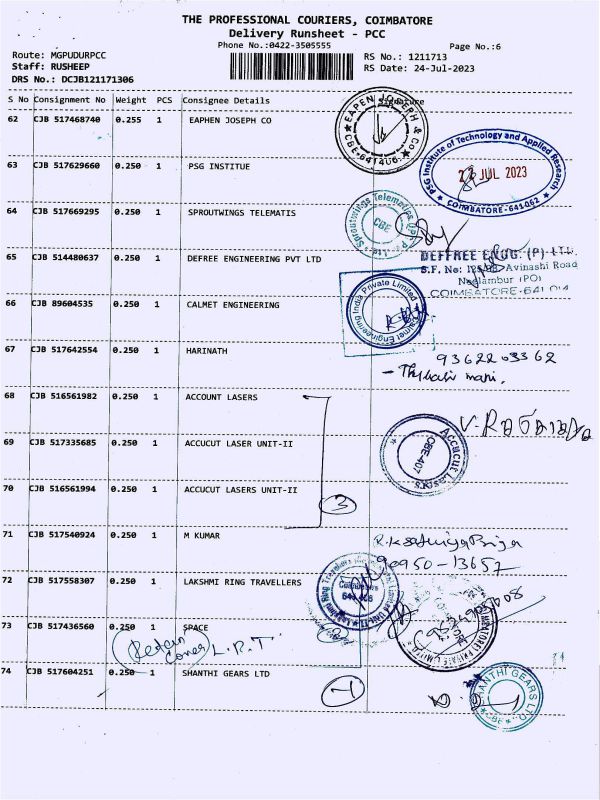 THE PROFESSIONAL COURIERS, COIMBATORE
Delivery Runsheet - PCC
Phone No.:0422-3505555
Page No.:6
Route: MGPUDURPCC
RS No.: 1211713
Staff: RUSHEEP
RS Date: 24-Jul-2023
DRS No.: DCJB121171306
S No Consignment No Weight PCS Consignee Details Signature
62 CJB 517468740 0.255 1 EAPHEN JOSEPH CO
EAPEN JOSEPH & CO
CBE-641406
63 CJB 517629660 0.250 1 PSG INSTITUE
PSG Institute of Technology and Applied Research
JUL 2023
COIMBATORE-641062
64 CJB 517669295 0.250 1 SPROUTWINGS TELEMATIS
Sproutwings Telematics
CBE
65 CJB 514480637 0.250 1 DEFREE ENGINEERING PVT LTD
DEFFREE ENGG. (P) LTD.
S.F. No: Avinashi Road
Neelambur (PO)
COIMBATORE-641 014
66 CJB 89604535 0.250 1 CALMET ENGINEERING
Calmet Engineering India Private Limited
67 CJB 517642554 0.250 1 HARINATH
9362203362
68 CJB 516561982 0.250 1 ACCOUNT LASERS
69 CJB 517335685 0.250 1 ACCUCUT LASER UNIT-II
Accucut Lasers
CBE-407
70 CJB 516561994 0.250 1 ACCUCUT LASERS UNIT-II
3
71 CJB 517540924 0.250 1 M KUMAR
90950-13657
72 CJB 517558307 0.250 1 LAKSHMI RING TRAVELLERS
Coimbatore
73 CJB 517436560 0.250 1 SPACE
L.R.T
PRIVATE LIMITED
74 CJB 517604251 0.250 1 SHANTHI GEARS LTD
SHANTHI GEARS LTD
CBE